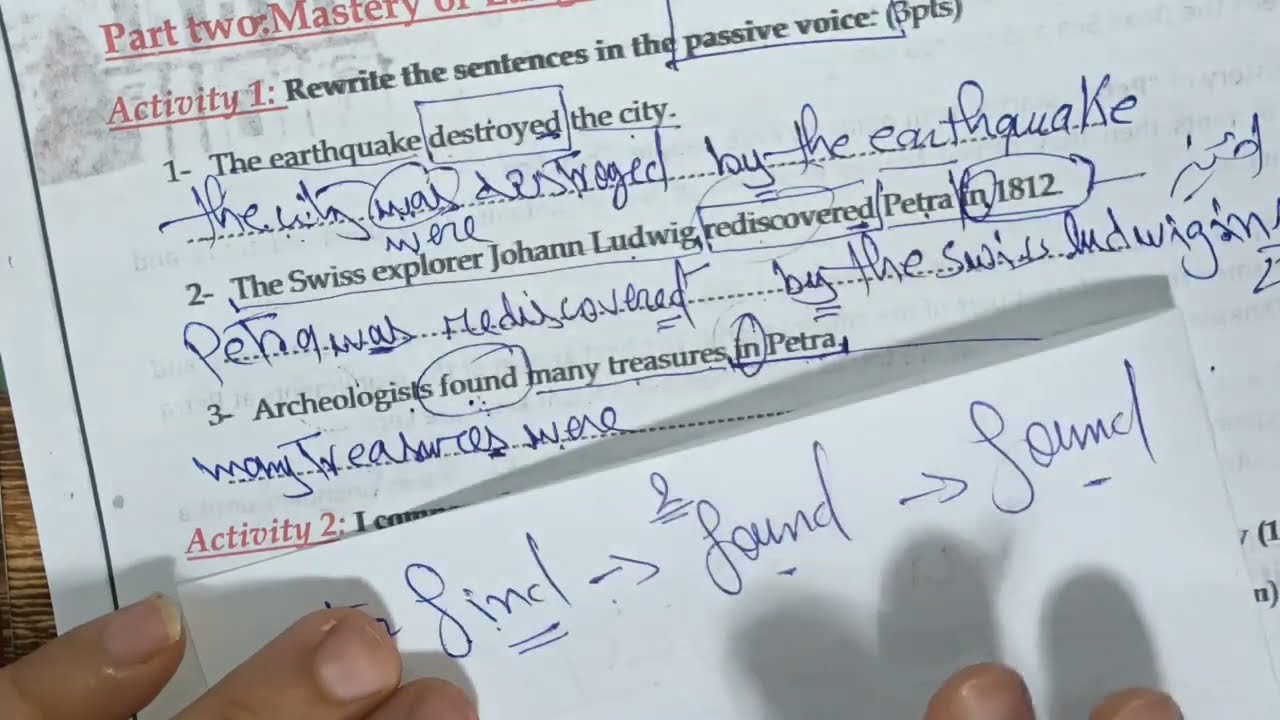 Part two: Mastery of
Activity 1: Rewrite the sentences in the passive voice: (3pts)
1- The earthquake destroyed the city.
the city was destroyed by the earthquake
were
2- The Swiss explorer Johann Ludwig rediscovered Petra in 1812
Petra was rediscovered by the swiss ludwig in
3- Archeologists found many treasures in Petra.
many Treasures were
Activity 2: I
find → found → found
2
(1
n)